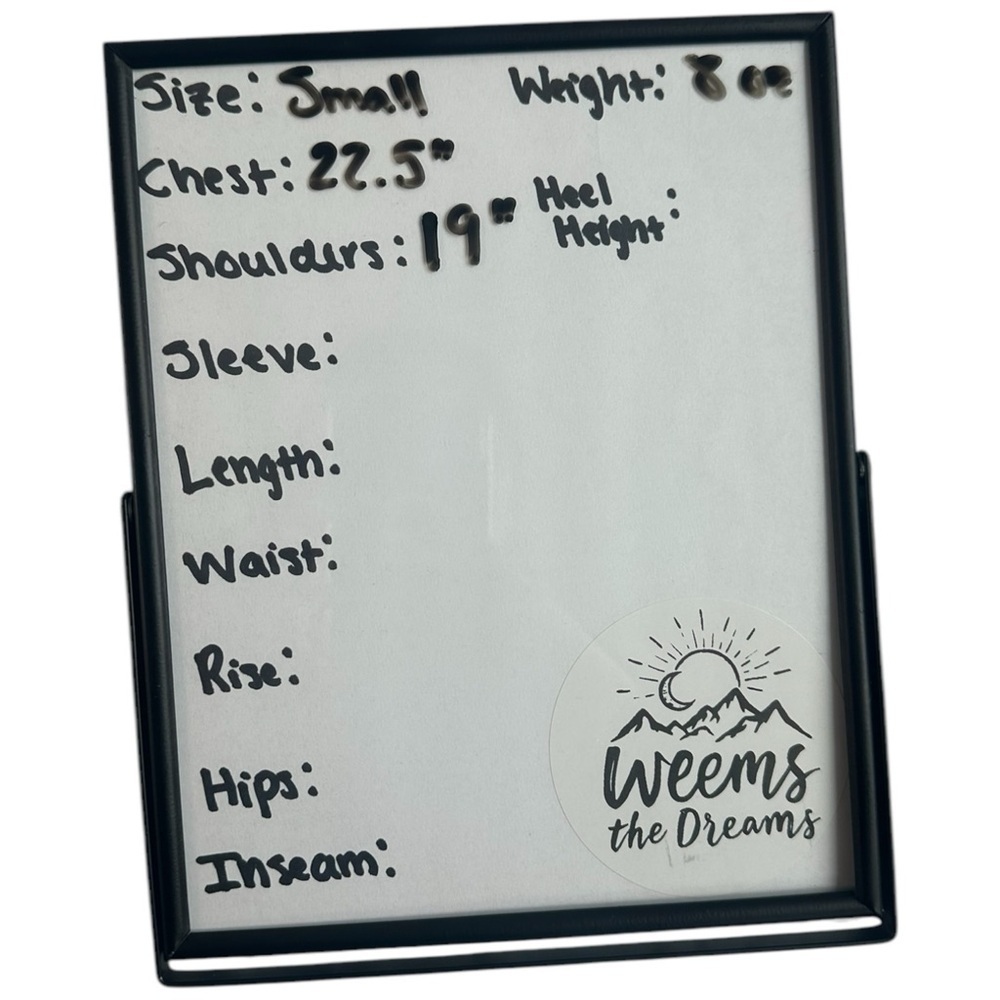 Size: Small Weight: 8 oz
Chest: 22.5"
Heel Height:
Shoulders: 19"
Sleeve:
Length:
Waist:
Rise:
Hips:
Inseam:
Weems
the Dreams